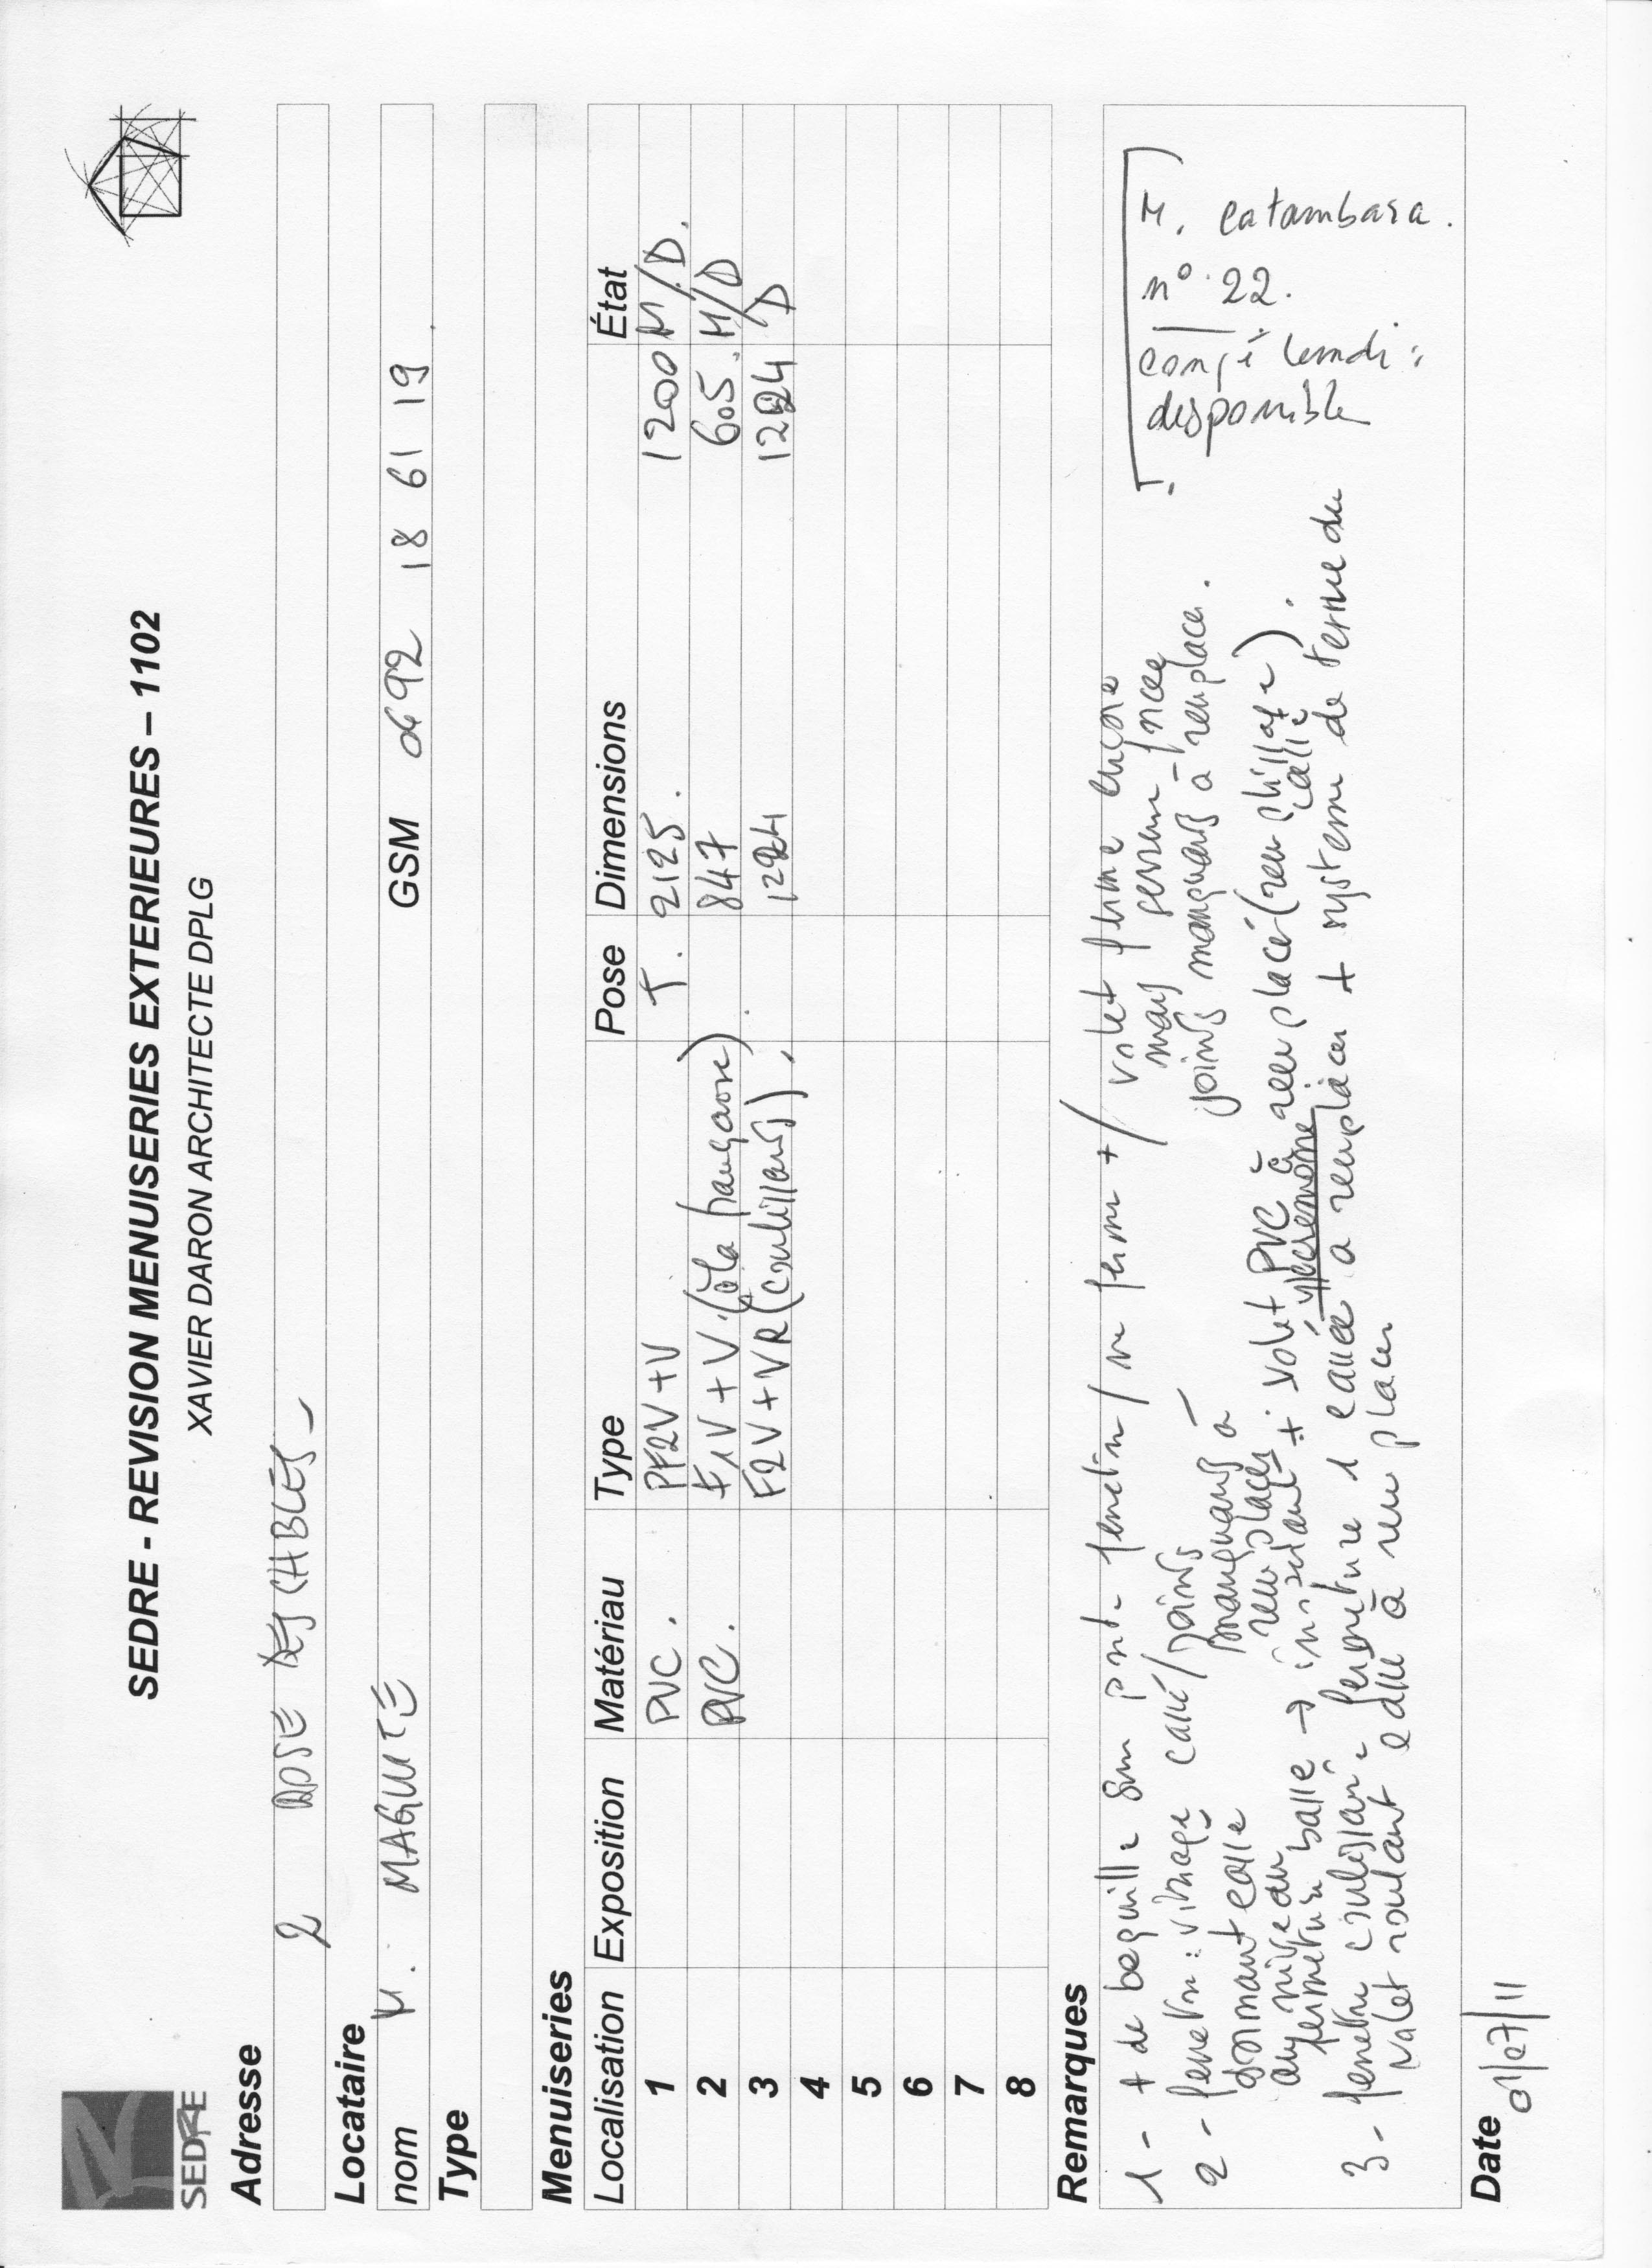 SEDRE - REVISION MENUISERIES EXTERIEURES – 1102
XAVIER DARON ARCHITECTE DPLG
SEDRE
Adresse
2 ROSE DES SABLES
Locataire
nom M. MAGUITE GSM 0692 18 61 19
Type
Menuiseries
Localisation Exposition Matériau Type Pose Dimensions État
1 PVC. PF2V+V T. 2125. 1200 M/D.
2 PVC. F1V+V (à la française) 847 605. M/D
3 F2V+VR (coulissant) 1224 1224 D
4
5
6
7
8
Remarques
1 - + de béquille sur porte fenêtre / ne ferme + / volet ferme encore
mais
joints manquants à remplacer.
2 - fenêtre : vitrage cassé / joints
manquants à
remplacer
dormant cassé
au niveau
fermeture basse → + volet PVC à remplacer
crémone cassée
3 - fenêtre coulissante fermeture 1 cassée à remplacer + système de fermeture du
volet roulant cassé à remplacer
M. Catambara.
n° 22.
congé lundi :
disponible
Date 01/07/11